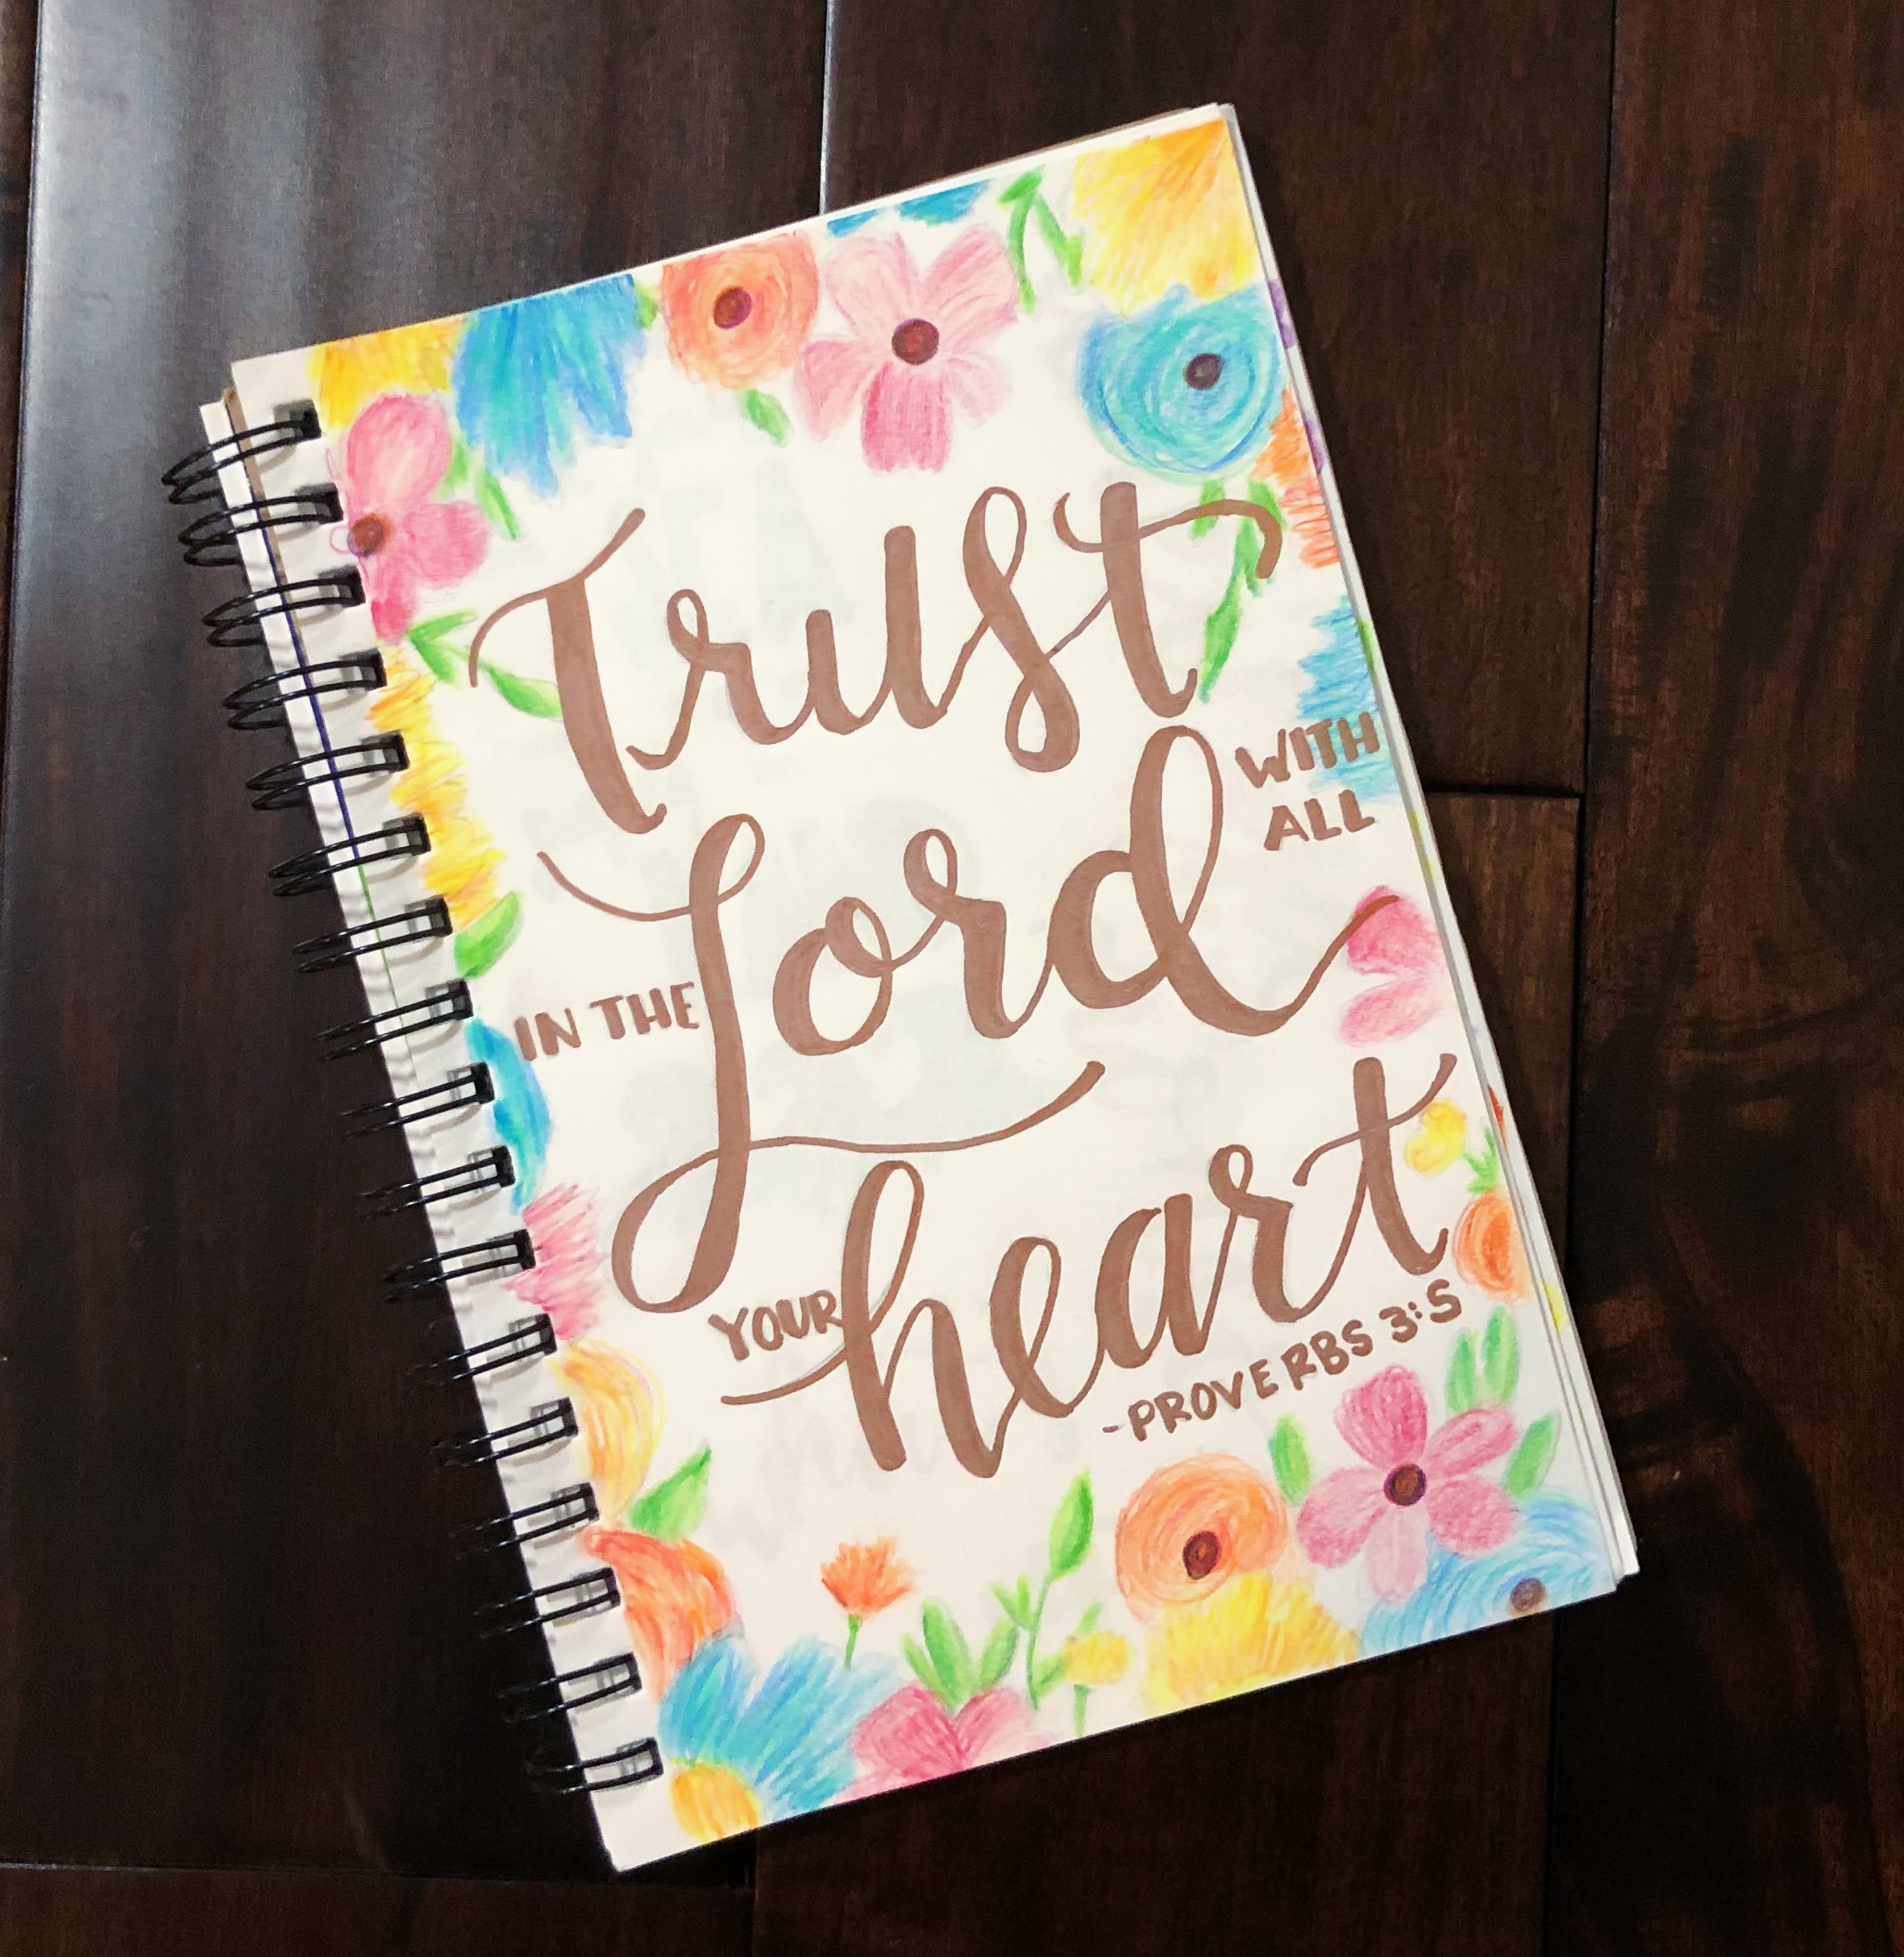 Trust
IN THE Lord WITH ALL
YOUR heart
-PROVERBS 3:5